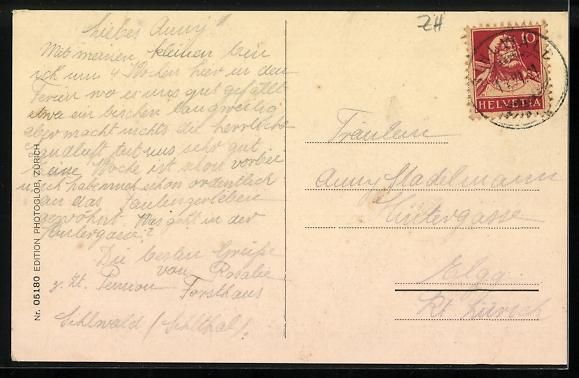 Liebes Anny!
Mit meinen kleinen bin
ich nun 4 Wochen hier in den
Ferien wo es uns gut gefällt
etwa ein bischen langweilig
aber macht nichts die herrliche
Landluft tut uns sehr gut
eine Woche ist schon vorbei
u. ich habe mich schon ordentlich
an das Faulenzerleben
gewöhnt. Was geht in der
Hintergasse?
Die besten Grüsse
von Rosalie
z. Zt. Pension Forsthaus
Sihlwald (Sihltal).
Nr. 05180 EDITION PHOTOGLOB, ZÜRICH
ZH
10
HELVETIA
Fräulein
Anny Stadelmann
Hintergasse
Elgg
Kt. Zürich